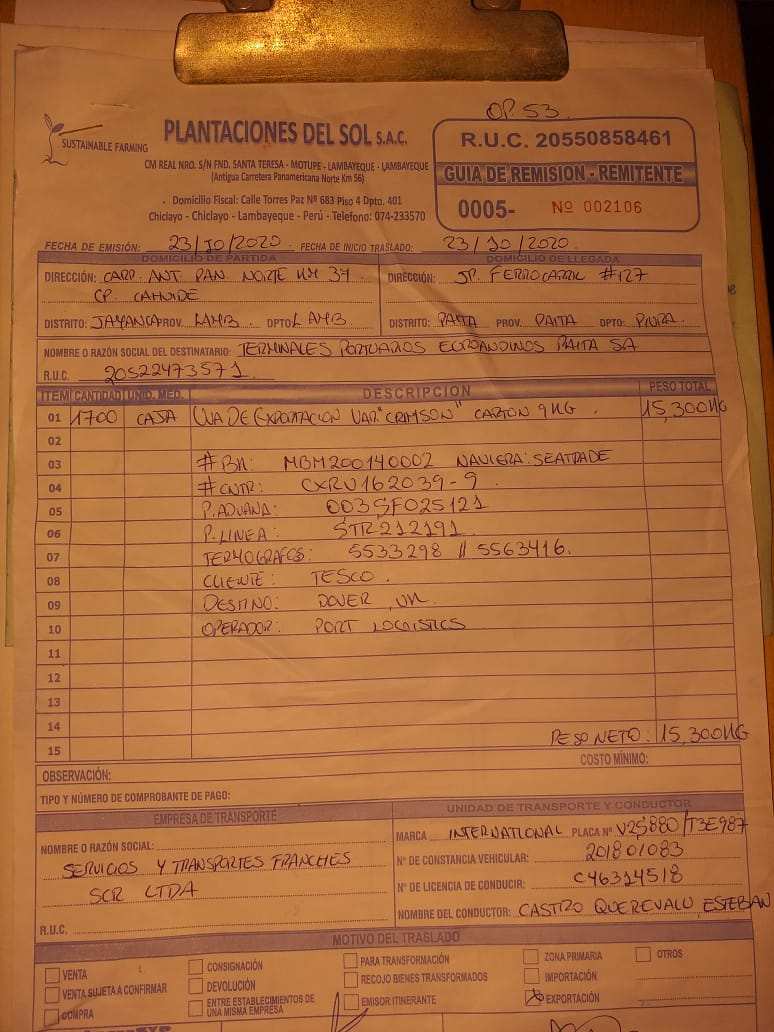 OP. 53
SUSTAINABLE FARMING
PLANTACIONES DEL SOL S.A.C.
CM REAL NRO. S/N FND. SANTA TERESA - MOTUPE - LAMBAYEQUE - LAMBAYEQUE
(Antigua Carretera Panamericana Norte Km 56)
Domicilio Fiscal: Calle Torres Paz Nº 683 Piso 4 Dpto. 401
Chiclayo - Chiclayo - Lambayeque - Perú - Telefono: 074-233570
R.U.C. 20550858461
GUIA DE REMISION - REMITENTE
0005- Nº 002106
FECHA DE EMISIÓN: 23/10/2020 FECHA DE INICIO TRASLADO: 23/10/2020
DOMICILIO DE PARTIDA
DIRECCIÓN: CARR. ANT. PAN. NORTE KM 37
CP. CAHUIDE
DISTRITO: JAYANCA PROV. LAMB. DPTO LAMB.
DOMICILIO DE LLEGADA
DIRECCIÓN: JR. FERROCARRIL #127
DISTRITO: PAITA PROV. PAITA DPTO: PIURA
NOMBRE O RAZÓN SOCIAL DEL DESTINATARIO: TERMINALES PORTUARIOS EUROANDINOS PAITA SA
R.U.C. 20522473571
ITEM CANTIDAD UNID. MED. DESCRIPCION PESO TOTAL
01 1700 CAJA UVA DE EXPORTACION VAR. "CRIMSON" CARTON 9KG. 15,300KG
02
03 #BK: MBM200140002 NAVIERA: SEATRADE
04 #CNTR: CXRU162039-9
05 P. ADUANA: 003SF025121
06 P. LINEA: STR212191
07 TERMOGRAFOS: 5533298 // 5563416.
08 CLIENTE: TESCO.
09 DESTINO: DOVER, UK
10 OPERADOR: PORT LOGISTICS
11
12
13
14
15 PESO NETO: 15,300KG
OBSERVACIÓN: COSTO MÍNIMO:
TIPO Y NÚMERO DE COMPROBANTE DE PAGO:
EMPRESA DE TRANSPORTE
NOMBRE O RAZÓN SOCIAL:
SERVICIOS Y TRANSPORTES FRANCHES
SCR LTDA
R.U.C.
UNIDAD DE TRANSPORTE Y CONDUCTOR
MARCA INTERNATIONAL PLACA Nº V2S880/T3E987
Nº DE CONSTANCIA VEHICULAR: 201801083
Nº DE LICENCIA DE CONDUCIR: C46314518
NOMBRE DEL CONDUCTOR: CASTRO QUEREVALU, ESTEBAN
MOTIVO DEL TRASLADO
VENTA CONSIGNACIÓN PARA TRANSFORMACIÓN ZONA PRIMARIA OTROS
VENTA SUJETA A CONFIRMAR DEVOLUCIÓN RECOJO BIENES TRANSFORMADOS IMPORTACIÓN
COMPRA ENTRE ESTABLECIMIENTOS DE UNA MISMA EMPRESA EMISOR ITINERANTE EXPORTACIÓN